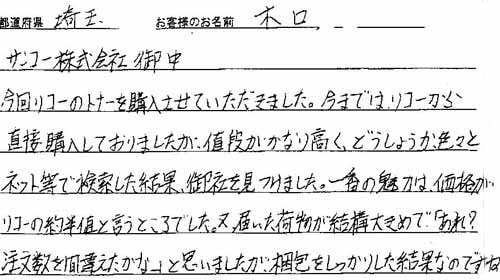 都道府県 埼玉 お客様のお名前 木口
サンコー株式会社御中
今回リコーのトナーを購入させていただきました。今まではリコーから
直接購入しておりましたが、値段がかなり高く、どうしようか色々と
ネット等で検索した結果、御社を見つけました。一番の魅力は、価格が
リコーの約半値と言うところでした。又、届いた荷物が結構大きめで「あれ?
注文数を間違えたかな」と思いましたが、梱包をしっかりした結果なのですね